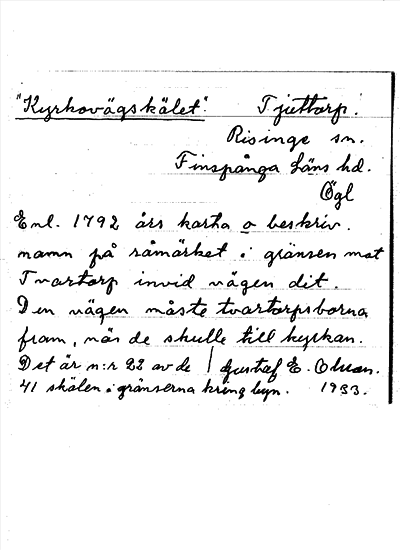 "Kyrkovägskälet". Tjuttorp.
Risinge sn.
Finspånga läns hd.
Ögl
Enl. 1792 års karta o beskriv.
namn på råmärket i gränsen mot
Tvartorp invid vägen dit.
Den vägen måste tvartorpsborna
fram, när de skulle till kyrkan.
Det är n:r 22 av de | Gustaf E.
41 skälen i gränserna kring byn. 1933.